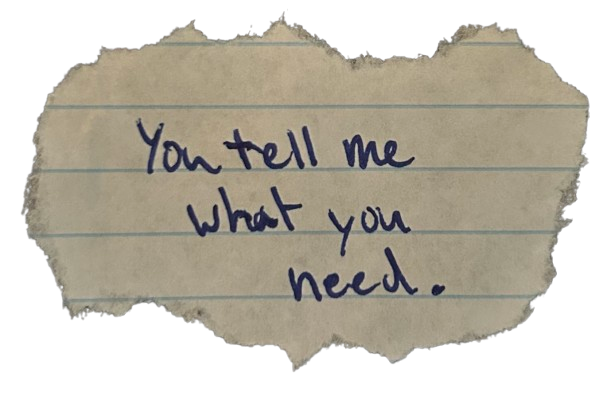 You tell me
what you
need.